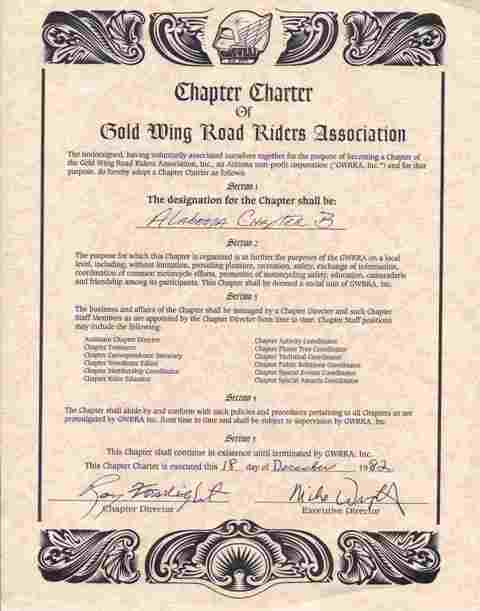 Chapter Charter
Of
Gold Wing Road Riders Association
The undersigned, having voluntarily associated ourselves together for the purpose of becoming a Chapter of
the Gold Wing Road Riders Association, Inc., an Arizona non-profit corporation ("GWRRA, Inc.") and for that
purpose, do hereby adopt a Chapter Charter as follows:
Section 1
The designation for the Chapter shall be:
Alabama Chapter B
Section 2
The purpose for which this Chapter is organized is to further the purposes of the GWRRA on a local
level, including, without limitation, providing pleasure, recreation, safety, exchange of information,
coordination of common motorcycle efforts, promotion of motorcycling safety, education, camaraderie
and friendship among its participants. This Chapter shall be deemed a social unit of GWRRA, Inc.
Section 3
The business and affairs of the Chapter shall be managed by a Chapter Director and such Chapter
Staff Members as are appointed by the Chapter Director from time to time. Chapter Staff positions
may include the following:
Assistant Chapter Director
Chapter Treasurer
Chapter Correspondence Secretary
Chapter Newsletter Editor
Chapter Membership Coordinator
Chapter Rider Educator
Chapter Activity Coordinator
Chapter Phone Tree Coordinator
Chapter Technical Coordinator
Chapter Public Relations Coordinator
Chapter Special Events Coordinator
Chapter Special Awards Coordinator
Section 4
The Chapter shall abide by and conform with such policies and procedures pertaining to all Chapters as are
promulgated by GWRRA Inc. from time to time and shall be subject to supervision by GWRRA, Inc.
Section 5
This Chapter shall continue in existence until terminated by GWRRA, Inc.
This Chapter Charter is executed this 18 day of December 1982
Roy Mike Wright
Chapter Director Executive Director